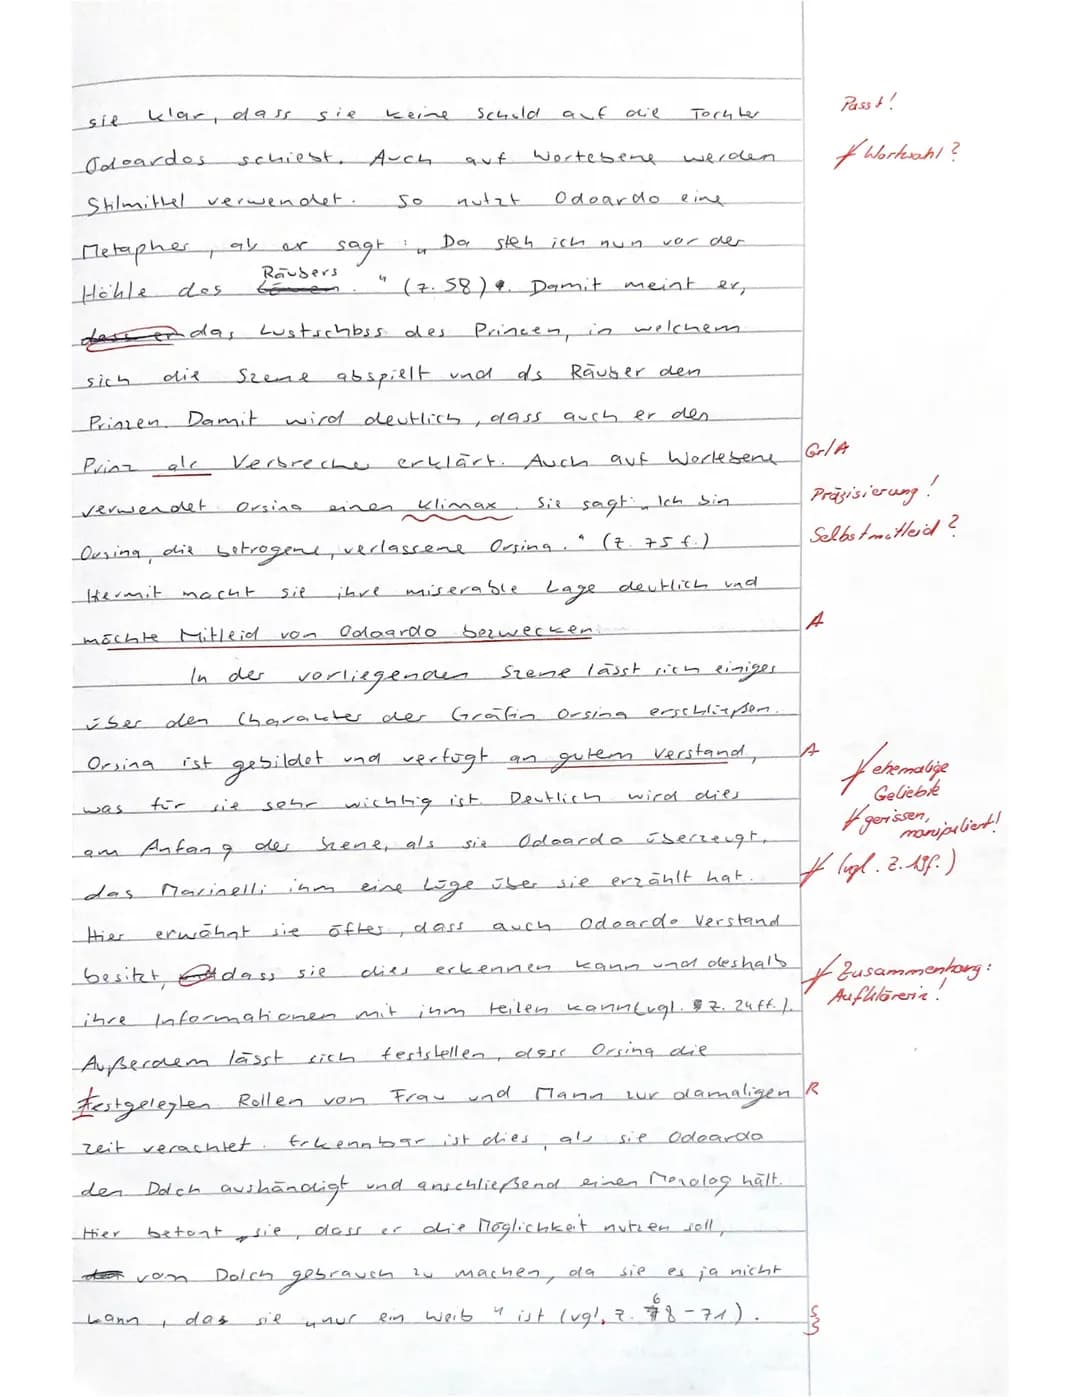 sie klar, dass sie keine Schuld auf die Tochter
Passt!
Odoardos schiebt. Auch auf Wortebene werden
Wortwahl?
Stilmittel verwendet. So nutzt Odoardo eine
Metapher, als er sagt: „Da steh ich nun vor der
Höhle des Räubers." (Z. 58). Damit meint er,
das Lustschloss des Prinzen, in welchem
sich die Szene abspielt und als Räuber den
Prinzen. Damit wird deutlich, dass auch er den
Prinz als Verbreche erklärt. Auch auf Wortebene
Gr/A
verwendet Orsina einen Klimax. Sie sagt: „Ich bin
Präzisierung!
Orsina, die betrogene, verlassene Orsina." (Z. 75 f.)
Selbstmitleid?
Hiermit macht sie ihre miserable Lage deutlich und
möchte Mitleid von Odoardo bezwecken.
A
In der vorliegenden Szene lässt sich einiges
über den Charakter der Gräfin Orsina erschließen.
Orsina ist gebildet und verfügt an gutem Verstand,
A
ehemalige
Geliebte
was für sie sehr wichtig ist. Deutlich wird dies
gerissen,
manipuliert!
am Anfang der Szene, als sie Odoardo überzeugt,
das Marinelli ihm eine Lüge über sie erzählt hat.
(vgl. Z. 19f.)
Hier erwähnt sie öfter, dass auch Odoardo Verstand
besitzt, dass sie dies erkennen kann und deshalb
Zusammenhang:
Aufklärerin!
ihre Informationen mit ihm teilen kann (vgl. Z. 24 ff.).
Außerdem lässt sich feststellen, dass Orsina die
festgelegten Rollen von Frau und Mann zur damaligen
R
Zeit verachtet. Erkennbar ist dies, als sie Odoardo
den Dolch aushändigt und anschließend einen Monolog hält.
Hier betont sie, dass er die Möglichkeit nutzen soll,
vom Dolch gebrauch zu machen, da sie es ja nicht
kann, das sie „nur ein Weib" ist (vgl. Z. 68-71).